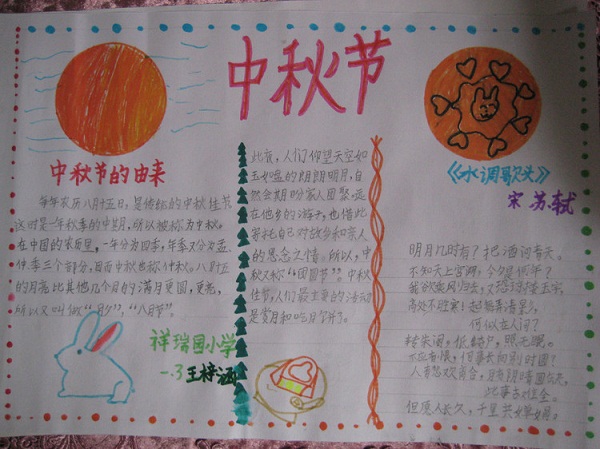 中秋节
中秋节的由来
每年农历八月十五日,是传统的中秋佳节
这时是一年秋季的中期,所以被称为中秋。
在中国的农历里,一年分为四季,每季又分为孟
仲季三个部分,因而中秋也称仲秋。八月十五
的月亮比其他几个月的满月更圆,更亮,
所以又叫做“月夕”,“八月节”。
祥瑞园小学
一.3王梓涵
此夜,人们仰望天空如
玉如盘的朗朗明月,自
然会期盼家人团聚。远
在他乡的游子,也借此
寄托自己对故乡和亲人
的思念之情。所以,中
秋又称“团圆节”。中秋
佳节,人们最主要的活动
是赏月和吃月饼了。
《水调歌头》
宋 苏轼
明月几时有?把酒问青天。
不知天上宫阙,今夕是何年?
我欲乘风归去,又恐琼楼玉宇,
高处不胜寒!起舞弄清影,
何似在人间?
转朱阁,低绮户,照无眠。
不应有恨,何事长向别时圆?
人有悲欢离合,月有阴晴圆缺,
此事古难全。
但愿人长久,千里共婵娟。